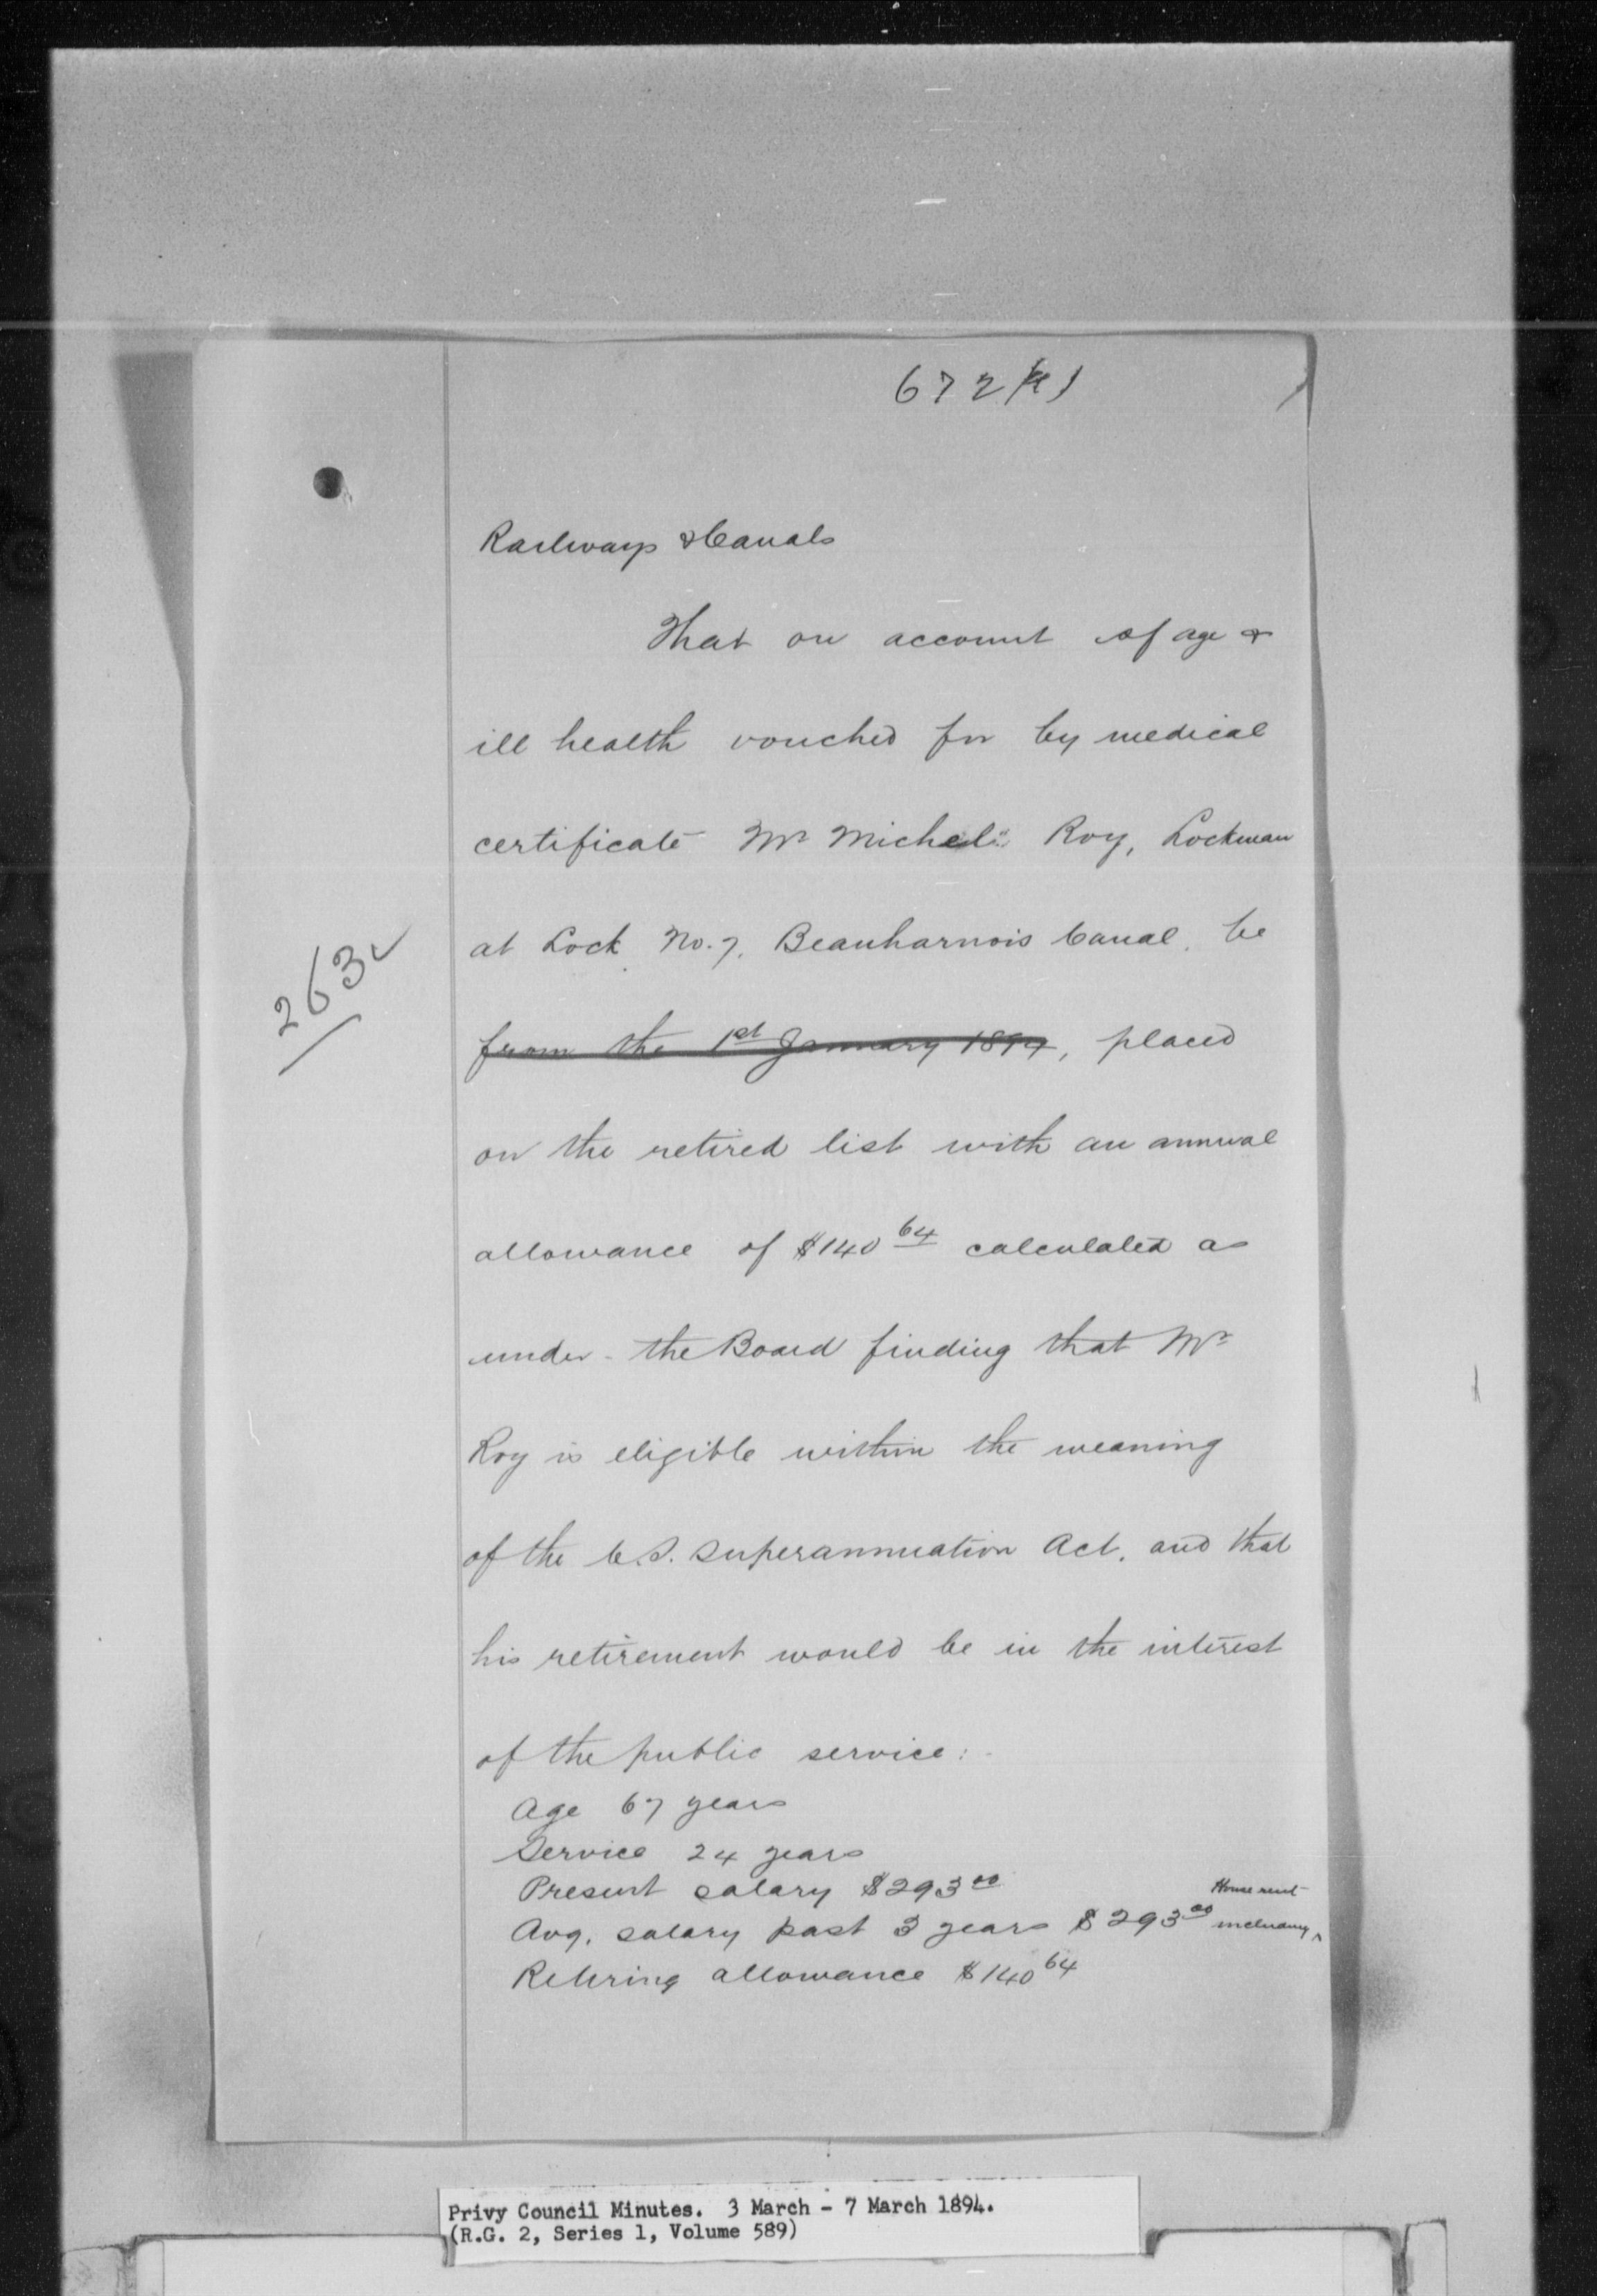 672
Railways & Canals
That on account of age &
ill health vouched for by medical
certificate Mr Michel Roy, Lockman
at Lock No. 7, Beauharnois Canal, be
263
from the 1st January 1894, placed
on the retired list with an annual
allowance of $140 64 calculated as
under - the Board finding that Mr
Roy is eligible within the meaning
of the C.S. Superannuation Act, and that
his retirement would be in the interest
of the public service:-
Age 67 years
Service 24 years
Present salary $293 00
House rent
Avg. salary past 3 years $293 00 including
Retiring allowance $140 64
Privy Council Minutes. 3 March - 7 March 1894.
(R.G. 2, Series 1, Volume 589)